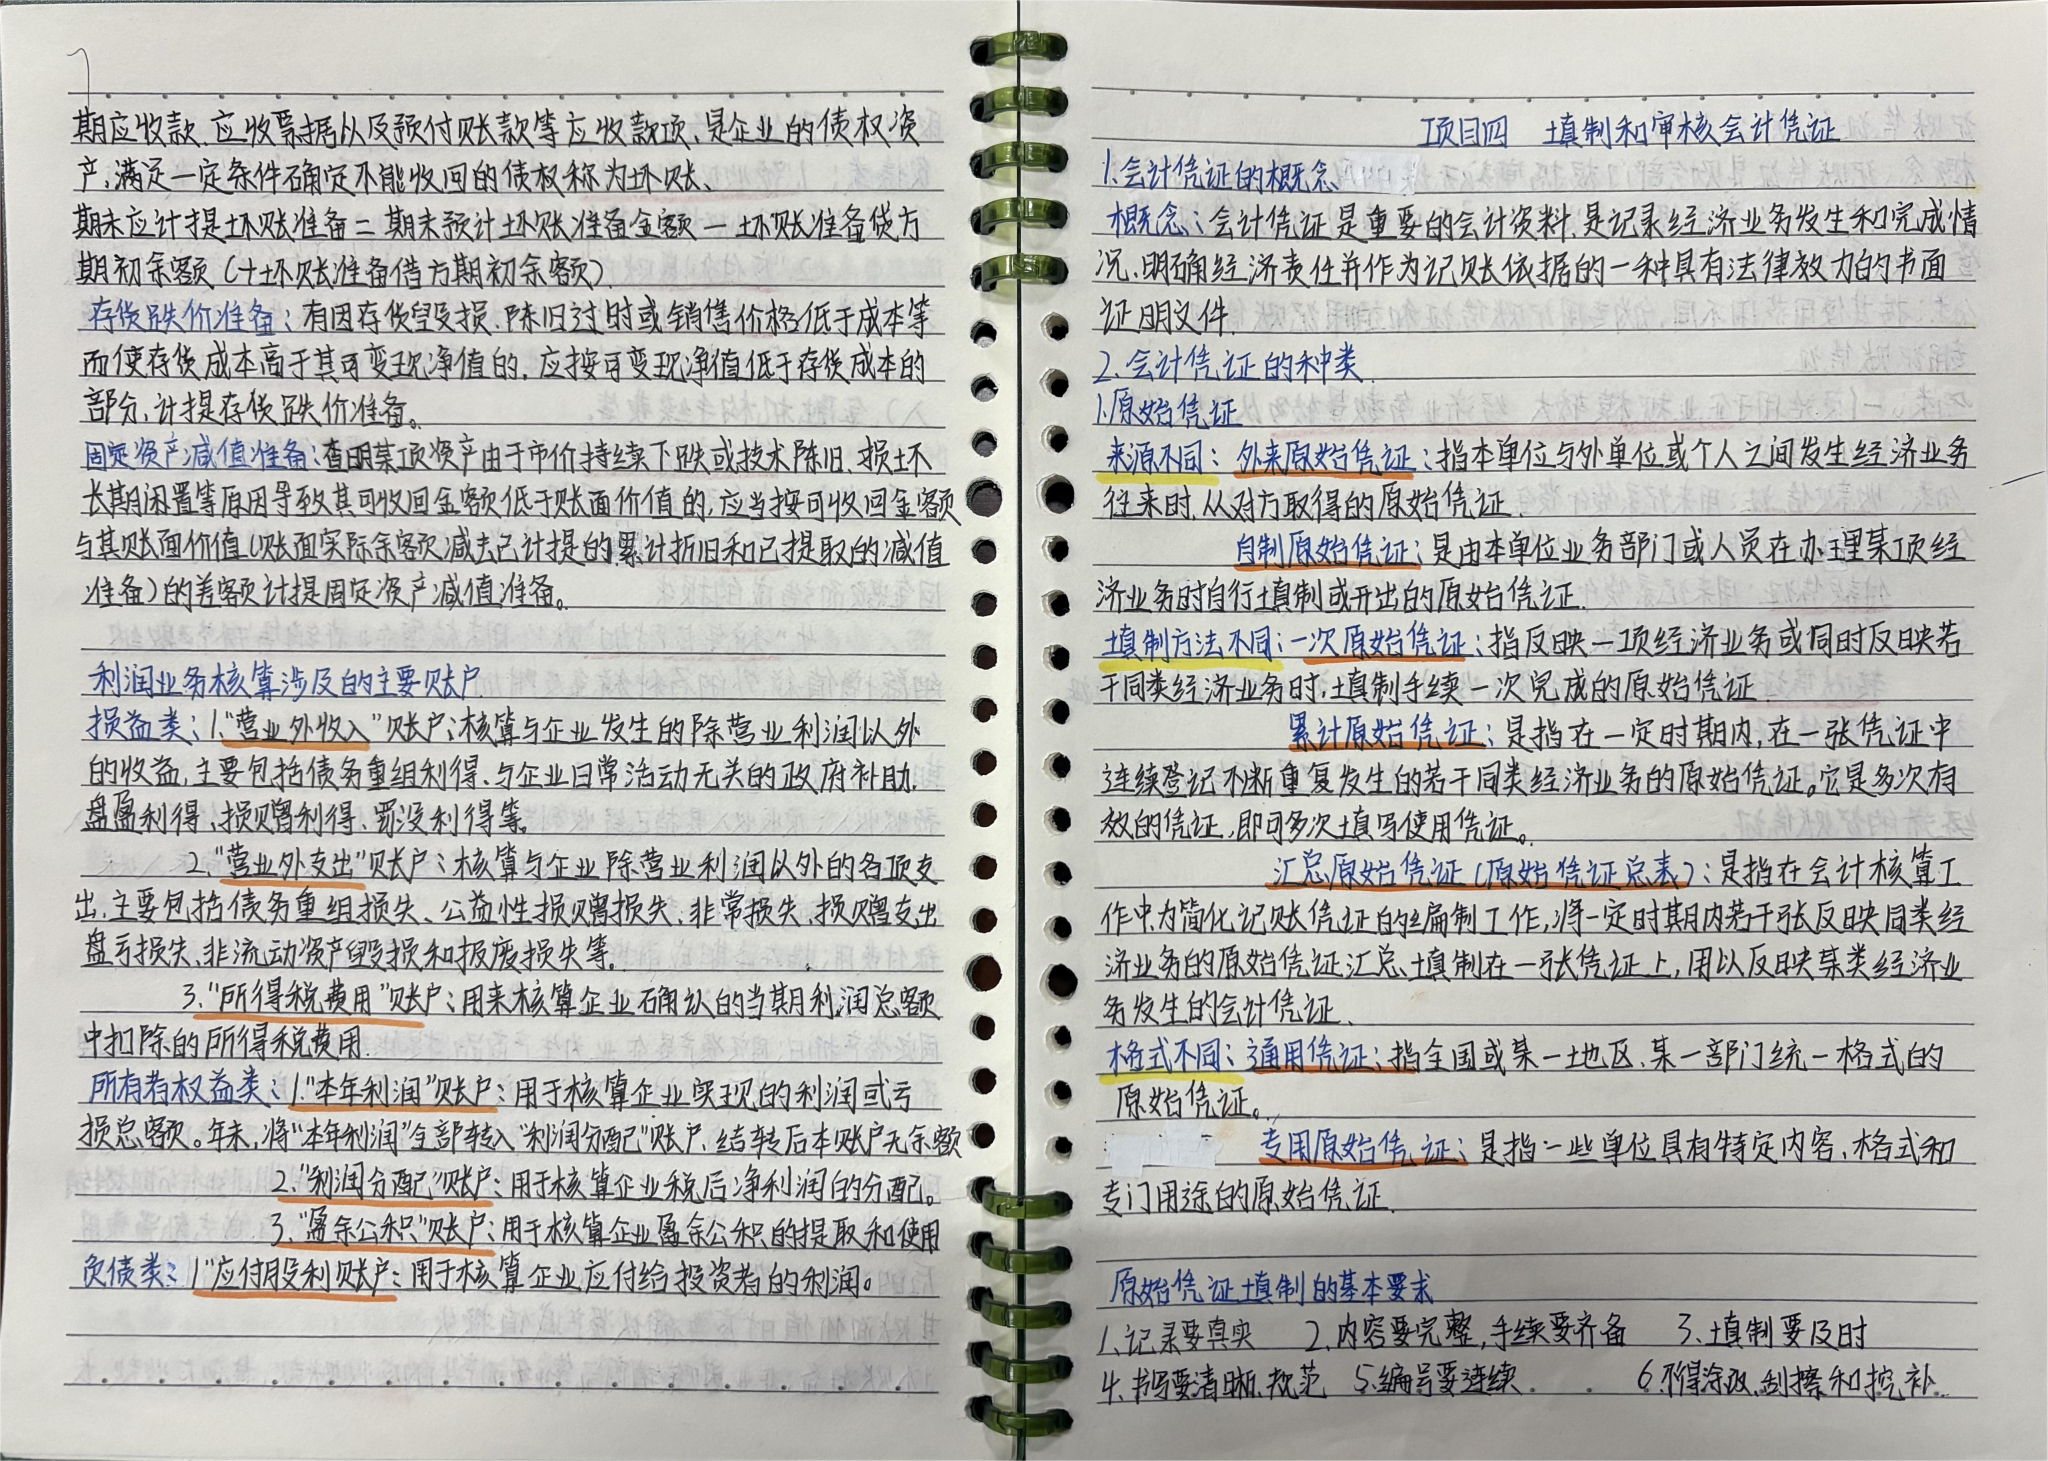 期应收款、应收票据以及预付账款等应收款项、是企业的债权资
产,满足一定条件确定不能收回的债权称为坏账、
期末应计提坏账准备=期末预计坏账准备金额-坏账准备贷方
期初余额(+坏账准备借方期初余额)
存货跌价准备:有因存货毁损、陈旧过时或销售价格低于成本等
而使存货成本高于其可变现净值的,应按可变现净值低于存货成本的
部分,计提存货跌价准备。
固定资产减值准备:查明某项资产由于市价持续下跌或技术陈旧、损坏
长期闲置等原因导致其可收回金额低于账面价值的,应当按可收回金额
与其账面价值(账面实际余额减去已计提的累计折旧和已提取的减值
准备)的差额计提固定资产减值准备。
利润业务核算涉及的主要账户
损益类:1."营业外收入"账户:核算与企业发生的除营业利润以外
的收益,主要包括债务重组利得、与企业日常活动无关的政府补助、
盘盈利得、损赠利得、罚没利得等。
2."营业外支出"账户:核算与企业除营业利润以外的各项支
出,主要包括债务重组损失、公益性损赠损失、非常损失、损赠支出
盘亏损失、非流动资产毁损和报废损失等、
3."所得税费用"账户:用来核算企业确认的当期利润总额
中扣除的所得税费用.
所有者权益类:1."本年利润"账户:用于核算企业实现的利润或亏
损总额。年末,将"本年利润"全部转入"利润分配"账户,结转后本账户无余额
2."利润分配"账户:用于核算企业税后净利润的分配。
3."盈余公积"账户:用于核算企业盈余公积的提取和使用
负债类:1"应付股利账户:用于核算企业应付给投资者的利润。
项目四 填制和审核会计凭证
1.会计凭证的概念
概念:会计凭证是重要的会计资料,是记录经济业务发生和完成情
况,明确经济责任并作为记账依据的一种具有法律效力的书面
证明文件.
2.会计凭证的种类
1.原始凭证
来源不同:外来原始凭证:指本单位与外单位或个人之间发生经济业务
往来时,从对方取得的原始凭证.
自制原始凭证:是由本单位业务部门或人员在办理某项经
济业务时自行填制或开出的原始凭证.
填制方法不同:一次原始凭证:指反映一项经济业务或同时反映若
干同类经济业务时,填制手续一次完成的原始凭证.
累计原始凭证:是指在一定时期内,在一张凭证中
连续登记不断重复发生的若干同类经济业务的原始凭证。它是多次有
效的凭证,即可多次填写使用凭证。
汇总原始凭证(原始凭证总表):是指在会计核算工
作中,为简化记账凭证的编制工作,将一定时期内若干张反映同类经
济业务的原始凭证汇总、填制在一张凭证上,用以反映某类经济业
务发生的会计凭证、
格式不同:通用凭证:指全国或某一地区、某一部门统一格式的
原始凭证。
专用原始凭证:是指一些单位具有特定内容、格式和
专门用途的原始凭证.
原始凭证填制的基本要求
1.记录要真实 2.内容要完整,手续要齐备 3.填制要及时
4.书写要清晰、规范 5.编号要连续 6.不得涂改、刮擦和挖补.